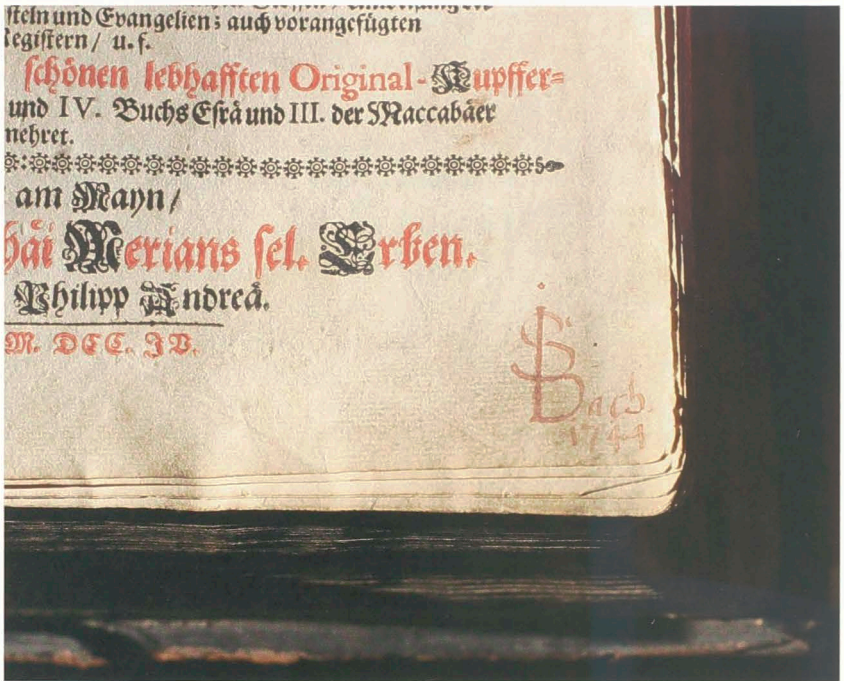 steln und Evangelien; auch vorangefügten
Registern/ u. f.
schönen lebhafften Original-Kupffer=
und IV. Buchs Esrä und III. der Maccabäer
mehret.
am Mayn/
häi Merians sel. Erben.
Philipp Andreä.
M. DCC. IV.
JSBach.
1744